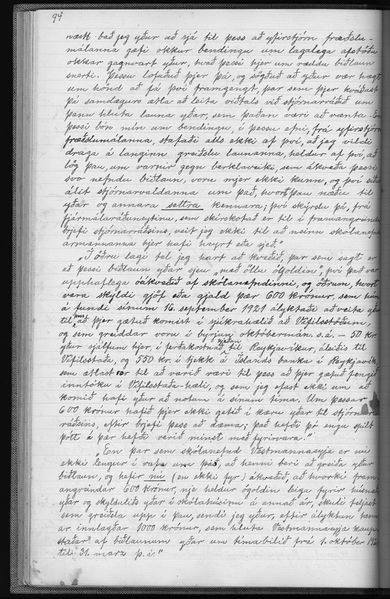 94
nauth. bað jeg yður að sjá til þess að yfirstjórn fræðslu-
málanna gæfi okkur bendingu um lagalega afstöðu
okkar gagnvart yður, hvað þessi hjer um ræddu biðlaun
snerti. Þessu lofuðuð þjer þá, og sögðuð að yður væri hægt
um hönd að fá því framgengt, þar sem þjer kváðust
þá samdægurs ætla að leita viðtals við stjórnarráðið um
þann hluta launa yðar, sem þaðan væri að vænta. En
þessi bón mín um bendingu, í þessu efni, frá yfirstjórn
fræðslumálanna, stafaði alls ekki af því, að jeg vildi
draga á langinn greiðslu launanna, heldur af því, að
lög þau um varnir gegn berklaveiki, sem ákveða þessi
svo nefndu biðlaun, voru mjer ekki kunn, og því síður
álit stjórnarvaldanna um það, hvort þau næðu til
yðar og annara settra kennara; því skýrslu þá, frá
fjármálaráðuneytinu, sem skírskotað er til í framangreindu
brjefi stjórnarráðsins, veit jeg ekki til að neinn skólanefnd-
armannanna hjer hafi heyrt eða sjeð."
"Í öðru lagi tel jeg hart að kveðið, þar sem sagt er
að þessi biðlaun yðar sjeu "með öllu ógoldin", því það var
upphaflega óákveðið af skólanefndinni, og öðrum, hvort
vera skyldi gjöf eða gjald þær 600 krónur, sem hún
á fundi sínum 16. september 1921 ályktaði að veita yður
til að þjer gætuð komist í sjúkrahælið á Vífilsstöðum,
og sem greiddar voru í byrjun októbermán. s.á. – 50 kr
yður sjálfum hjer, í ferðakostnað til Reykjavíkur, áleiðis til
Vífilsstaða, og 550 kr í tjekk á Íslands banka í Reykjavík
sem ætlast var til að varið væri til þess að þjer gætuð fengið
inntöku í Vífilsstaða hæli, og sem jeg efast ekki um að
komið hafi yður að notum á sínum tíma. Um þessar
600 krónur hafið þjer ekki getið í kæru yðar til stjórnar-
ráðsins, eftir brjefi þess að dæma; það hefði þó engu spilt
þótt á þær hefði verið minst með fyrirvara."
"En þar sem skólanefnd Vestmannaeyja er nú
ekki lengur í vafa um það, að henni beri að greiða yður
biðlaun, og hefir nú (en ekki fyr) ákveðið, að hvorki fram-
angreindar 600 krónur, nje heldur ógoldin leiga fyrir húsnæði
yðar og skylduliðs yðar í skólahúsinu á annað ár, skuli teljast
sem greiðsla upp í þau, sendi jeg yður, eftir ályktun hennar
ar innlagðar 1000 krónur, sem hluta Vestmannaeyja kaup-
staðar af biðlaunum yðar um tímabilið frá 1. október 1921
til 31. marz þ.á."